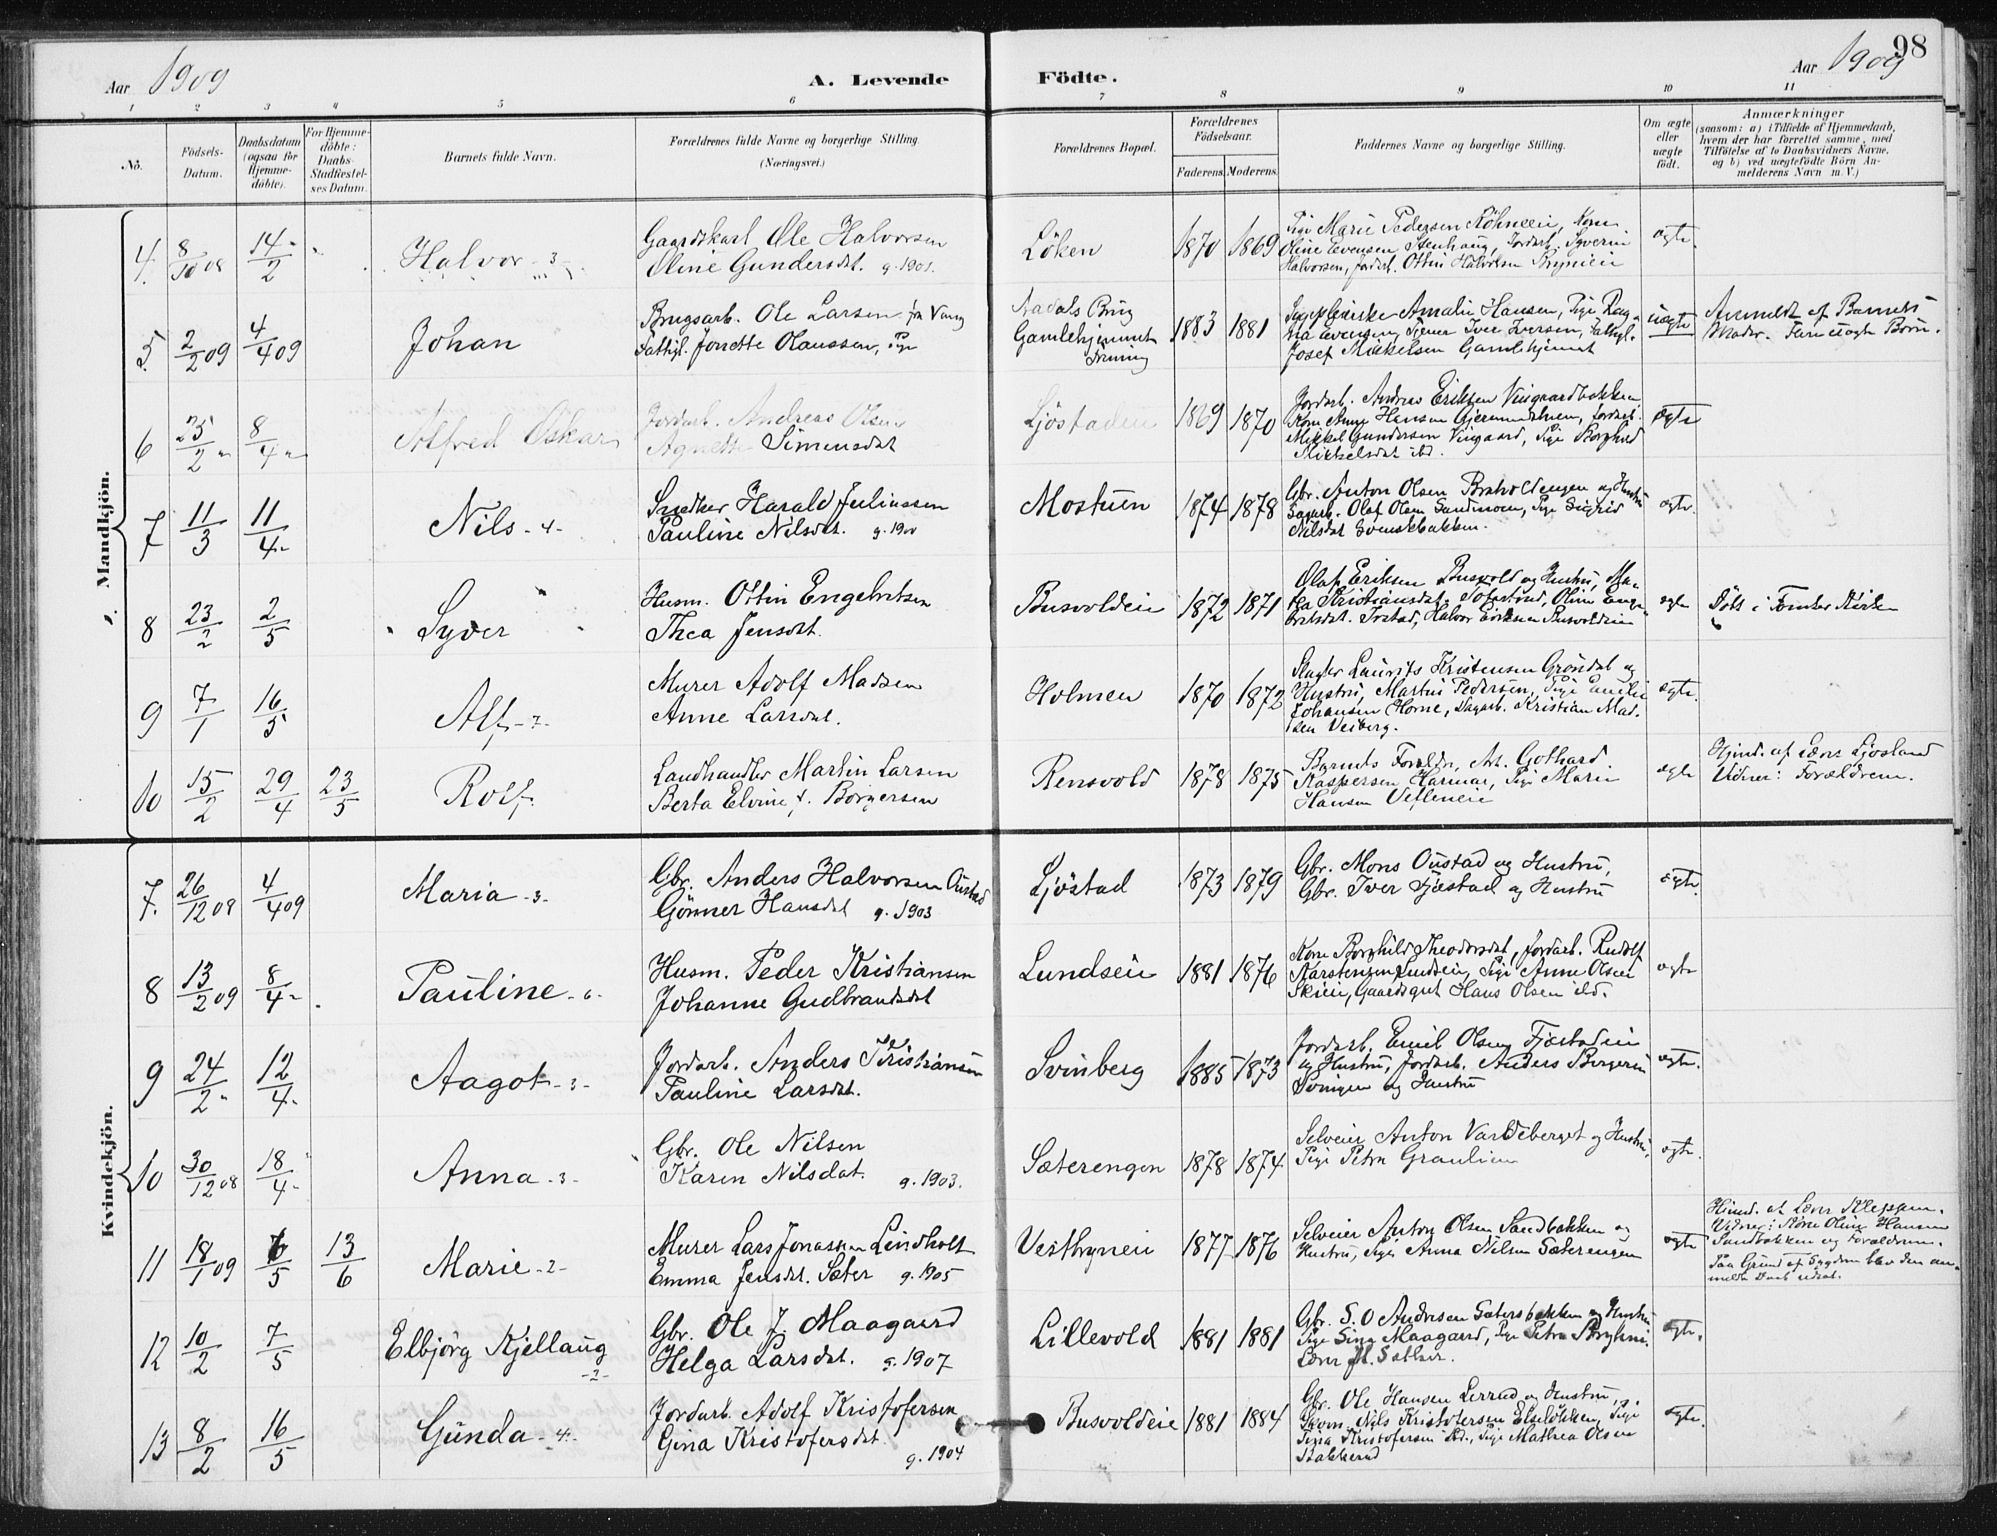 98
Aar 1909
A. Levende
Födte.
Aar 1909
1 2 3 4 5 6 7 8 9 10 11
No.
Födsels-Datum.
Daabsdatum (ogsaa for Hjemme-döbte).
For Hjemme-döbte: Daabs-Stadfæstel-ses Datum.
Barnets fulde Navn.
Forældrenes fulde Navne og borgerlige Stilling. (Næringsvei.)
Forældrenes Bopæl.
Forældrenes Födselsaar.
Faderens. Moderens.
Faddernes Navne og borgerlige Stilling.
Om ægte eller uægte födt.
Anmærkninger
(saasom: a) i Tilfælde af Hjemmedaab, hvem der har forrettet samme, med Tilföielse af to Daabsvidners Navne, og b) ved uægtefödte Börn An-melderens Navn m. V.)
Mandkjön.
4. 8/10 08 14/2 Halvor - 3 -
Gaardskarl Ole Halvorsen
Oline Gundersdt. g. 1901.
Löken 1870 1869
Pige Marie Pedersen Röhneeie, Kone
Oline Evensen Stenhaug, Jordarb. Syverin
Halvorsen, Jordarb. Ottin Halvorsen Brynieie
ægte.
5. 2/2 09 4/4 09 Johan
Brugsarb. Ole Larsen fra Vang
Fattigl. Jonette Olaussen, Pige
Aadals Brug
Gamlehjemmet
1883 1881
Amalie Hansen, Pige Rag-
Evensen, Tjener Iver Iversen, Fattigl.
Josef Mikkelsen Gamlehjemmet
uægte
Anmeldt af Barnets
Moder. Fars uægte Börn.
6 25/2 " 8/4 " Alfred Oskar
Jordarb. Andreas Olsen
Agnette Simensdat
Ljöstadeie 1869 1870
Jordarb. Andreas Eriksen Vingaardbakken
Kone Anne Hansen Gjermundshuen, Jordarb.
Mikkel Gundersen Vingaard, Pige Borghild
Mikkelsdat ibd.
ægte
7 11/3 11/4 " Nils - 4 -
Snedker Harald Juliussen
Pauline Nilsdat. g. 1900
Mostuen 1874 1878
Gbr. Anton Olsen Braholdengen og Hustru
Dagarb. Olaf Olsen Sandmoen, Pige Sigrid
Nilsdat Svenskbakken.
ægte.
8 23/2 2/5 Syver
Husm. Ottin Engebretsen
Thea Jensdt.
Busvoldeie 1872 1871
Olaf Eriksen Busvold og Hustru, Ma-
thea Kristiansdat. Tofastrud, Oline Enge-
bretsdat. Frstad, Halvor Eriksen Busvoldeie
ægte
Döbt i Tomter Kirke
9 7/1 16/5 Alf - 7 -
Murer Adolf Madsen
Anne Larsdat.
Holmen 1870 1872
Slagter Laurits Kristensen Gröndal og
Hustru, Martin Pedersen, Pige Emilie
Johansen Horne, Dagarb. Kristian Mad-
sen Veiberg.
ægte.
10 15/2 29/4 23/5 Rolf
Landhandler Martin Larsen
Berta Elvine f. Borgersen
Rensvold 1878 1875
Barnets Forældre, Arb. Gothard
Kaspersen Hamar, Pige Marie
Hansen Vefleneie
ægte
Hjmd. af Lærer Ljosland
Vidner: Forældrene.
Kvindekjön.
7. 26/12 08 4/4 09 Maria - 3 -
Gbr. Anders Halvorsen Oustad
Gönner Hansdat g. 1903
Ljöstad 1873 1879
Gbr. Mons Oustad og Hustru,
Gbr. Iver Fjæstad og Hustru
ægte.
8 13/2 09 8/4 " Pauline - 6 -
Husm. Peder Kristiansen
Johanne Gudbrandsdat
Lundseie 1881 1876
Kone Borghild Theodorsdat, Jordarb. Rudolf
Karstensen Lundseie, Pige Anne Olsen
Skieie, Gaardsgut Hans Olsen ibd.
ægte
9 24/2 " 12/4 " Aagot - 3 -
Jordarb. Anders Kristiansen
Pauline Larsdat.
Svinberg 1885 1873
Jordarb. Emil Olsen Fjæstadeie
og Hustru, Jordarb. Anders Borgersen
Svingen og Hustru
ægte.
10 30/12 08 18/4 " Anna - 3 -
Gbr. Ole Nilsen
Karen Nilsdat. g. 1903.
Sæterengen 1878 1874
Selveier Anton Vardeberget og Hustru,
Pige Petra Graulien
ægte.
11 18/1 09 6/5 13/6 Marie - 2 -
Murer Lars Jonassen Lindholt
Emma Jensdat. Sæter g. 1905
Vestbyneie 1877 1876
Selveier Anton Olsen Sandbakken og
Hustru, Pige Anna Nilsen Sæterengen
ægte
Hjmd. af Lærer Kleppen.
Vidner: Kone Oline Hansen
Sandbakken og Forældrene.
Paa Grund af Sygdom blev den an-
meldte Daab udsat.
12 10/2 7/5 Elbjörg Kjellaug - 2 -
Gbr. Ole J. Maagaard
Helga Larsdat. g. 1907
Lillevold 1881 1881
Gbr. S. O. Andresen Sætersbakken og Hustru
Pige Sina Maagaard, Pige Petra Bryhni
Lærer Sæther.
ægte.
13 8/2 16/5 Gunda - 4 -
Jordarb. Adolf Kristofersen
Gina Kristofersdat. g. 1904
Busvoldeie 1881 1884
Gbr. Ole Hansen Lerrud og Hustru
Nils Kristofersen Elselökken, Pige
Tina Kristofersen ibd., Pige Mathea Olsen
Bakkerud
ægte.